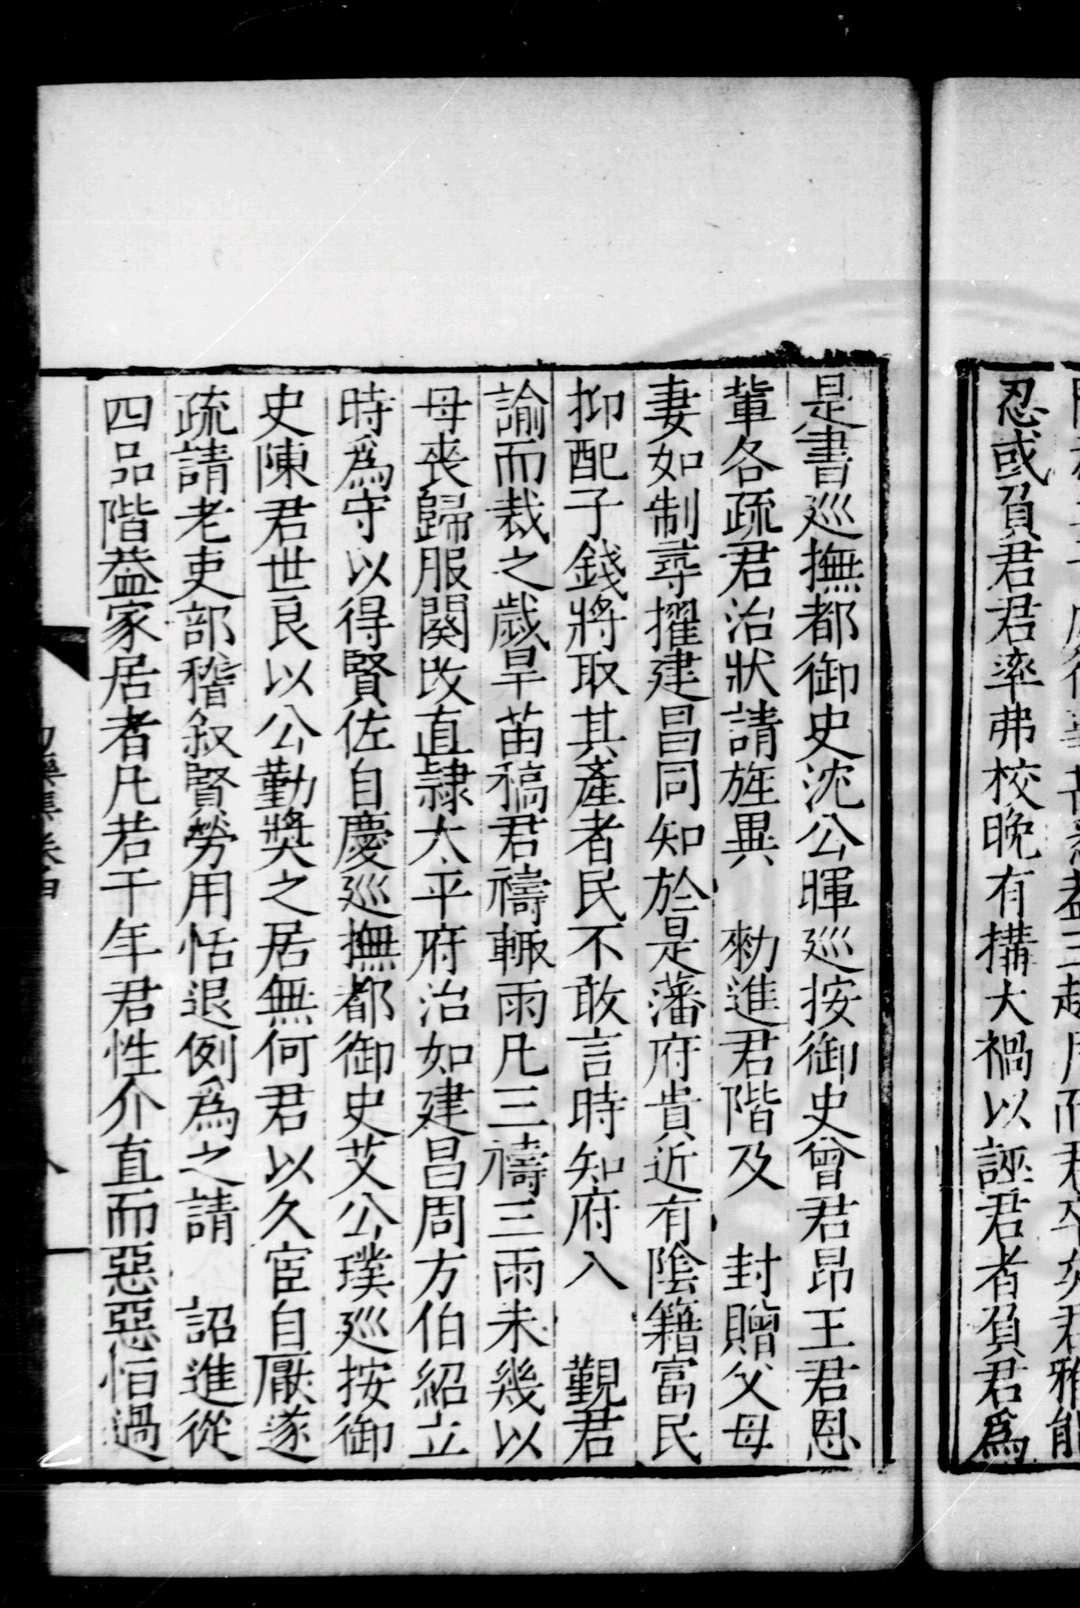 忍或負君君率弗校晚有搆大禍以誣君者負君為
是書巡撫都御史沈公暉巡按御史曾君昂王君恩
軰各疏君治狀請旌異　勑進君階及　封贈父母
妻如制尋擢建昌同知於是藩府貴近有陰籍富民
抑配子錢將取其產者民不敢言時知府入　覲君
諭而裁之歲旱苗稿君禱輙雨凡三禱三雨未幾以
母丧歸服闋改直隷太平府治如建昌周方伯紹立
時爲守以得賢佐自慶巡撫都御史艾公璞巡按御
史陳君世良以公勤奬之居無何君以久宦自厭遂
疏請老吏部稽叙賢勞用恬退例爲之請　詔進從
四品階葢家居者凡若干年君性介直而惡惡怕過